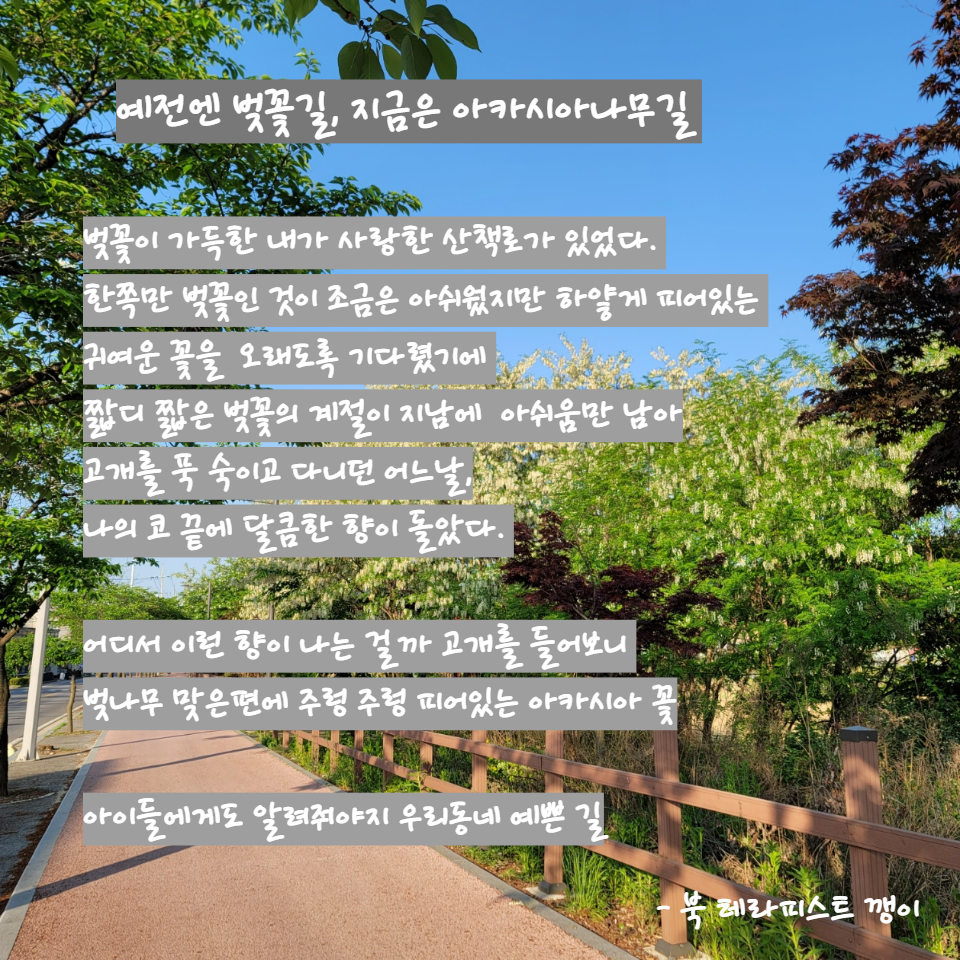 예전엔 벚꽃길, 지금은 아카시아나무길
벚꽃이 가득한 내가 사랑한 산책로가 있었다.
한쪽만 벚꽃인 것이 조금은 아쉬웠지만 하얗게 피어있는
귀여운 꽃을 오래도록 기다렸기에
짧디 짧은 벚꽃의 계절이 지남에 아쉬움만 남아
고개를 푹 숙이고 다니던 어느날,
나의 코 끝에 달큼한 향이 돌았다.
어디서 이런 향이 나는 걸까 고개를 들어보니
벚나무 맞은편에 주렁 주렁 피어있는 아카시아 꽃
아이들에게도 알려줘야지 우리동네 예쁜 길
- 북 테라피스트 깽이